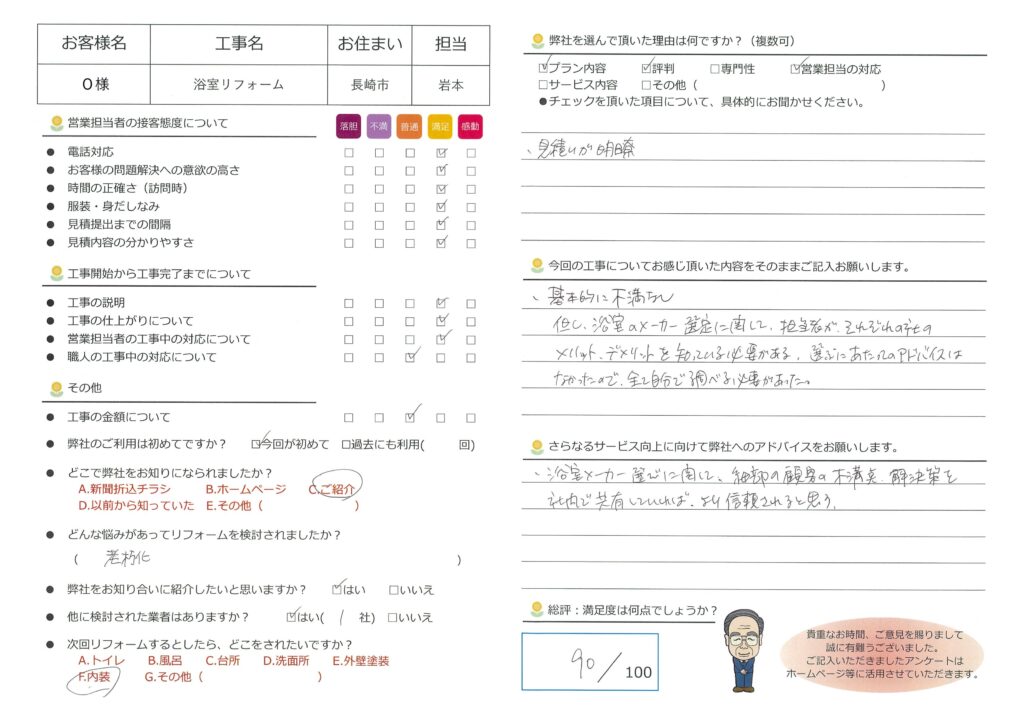 お客様名 工事名 お住まい 担当
O様 浴室リフォーム 長崎市 岩本
営業担当者の接客態度について 落胆 不満 普通 満足 感動
● 電話対応 □ □ □ ☑ □
● お客様の問題解決への意欲の高さ □ □ □ ☑ □
● 時間の正確さ（訪問時） □ □ □ ☑ □
● 服装・身だしなみ □ □ □ ☑ □
● 見積提出までの間隔 □ □ □ ☑ □
● 見積内容の分かりやすさ □ □ □ ☑ □
工事開始から工事完了までについて
● 工事の説明 □ □ □ ☑ □
● 工事の仕上がりについて □ □ □ ☑ □
● 営業担当者の工事中の対応について □ □ □ ☑ □
● 職人の工事中の対応について □ □ ☑ □ □
その他
● 工事の金額について □ □ ☑ □ □
● 弊社のご利用は初めてですか？ ☑今回が初めて □過去にも利用( 回)
● どこで弊社をお知りになられましたか？
A.新聞折込チラシ B.ホームページ C.ご紹介
D.以前から知っていた E.その他（ ）
● どんな悩みがあってリフォームを検討されましたか？
（ 老朽化 ）
● 弊社をお知り合いに紹介したいと思いますか？ ☑はい □いいえ
● 他に検討された業者はありますか？ ☑はい( 1 社) □いいえ
● 次回リフォームするとしたら、どこをされたいですか？
A.トイレ B.風呂 C.台所 D.洗面所 E.外壁塗装
F.内装 G.その他（ ）
弊社を選んで頂いた理由は何ですか？（複数可）
☑プラン内容 ☑評判 □専門性 ☑営業担当の対応
□サービス内容 □その他（ ）
●チェックを頂いた項目について、具体的にお聞かせください。
、見積りが明瞭
今回の工事についてお感じ頂いた内容をそのままご記入お願いします。
、基本的に不満なし
但し、浴室のメーカー選定に関して、担当者が、それぞれの社の
メリット、デメリットを知っている必要がある。選ぶにあたってのアドバイスは
なかったので、全て自分で調べる必要があった。
さらなるサービス向上に向けて弊社へのアドバイスをお願いします。
・浴室メーカー選びに関して、細部の顧客の不満点、解決策を
社内で共有していれば、より信頼されると思う。
総評：満足度は何点でしょうか？
90/100
貴重なお時間、ご意見を賜りまして
誠に有難うございました。
ご記入いただきましたアンケートは
ホームページ等に活用させていただきます。